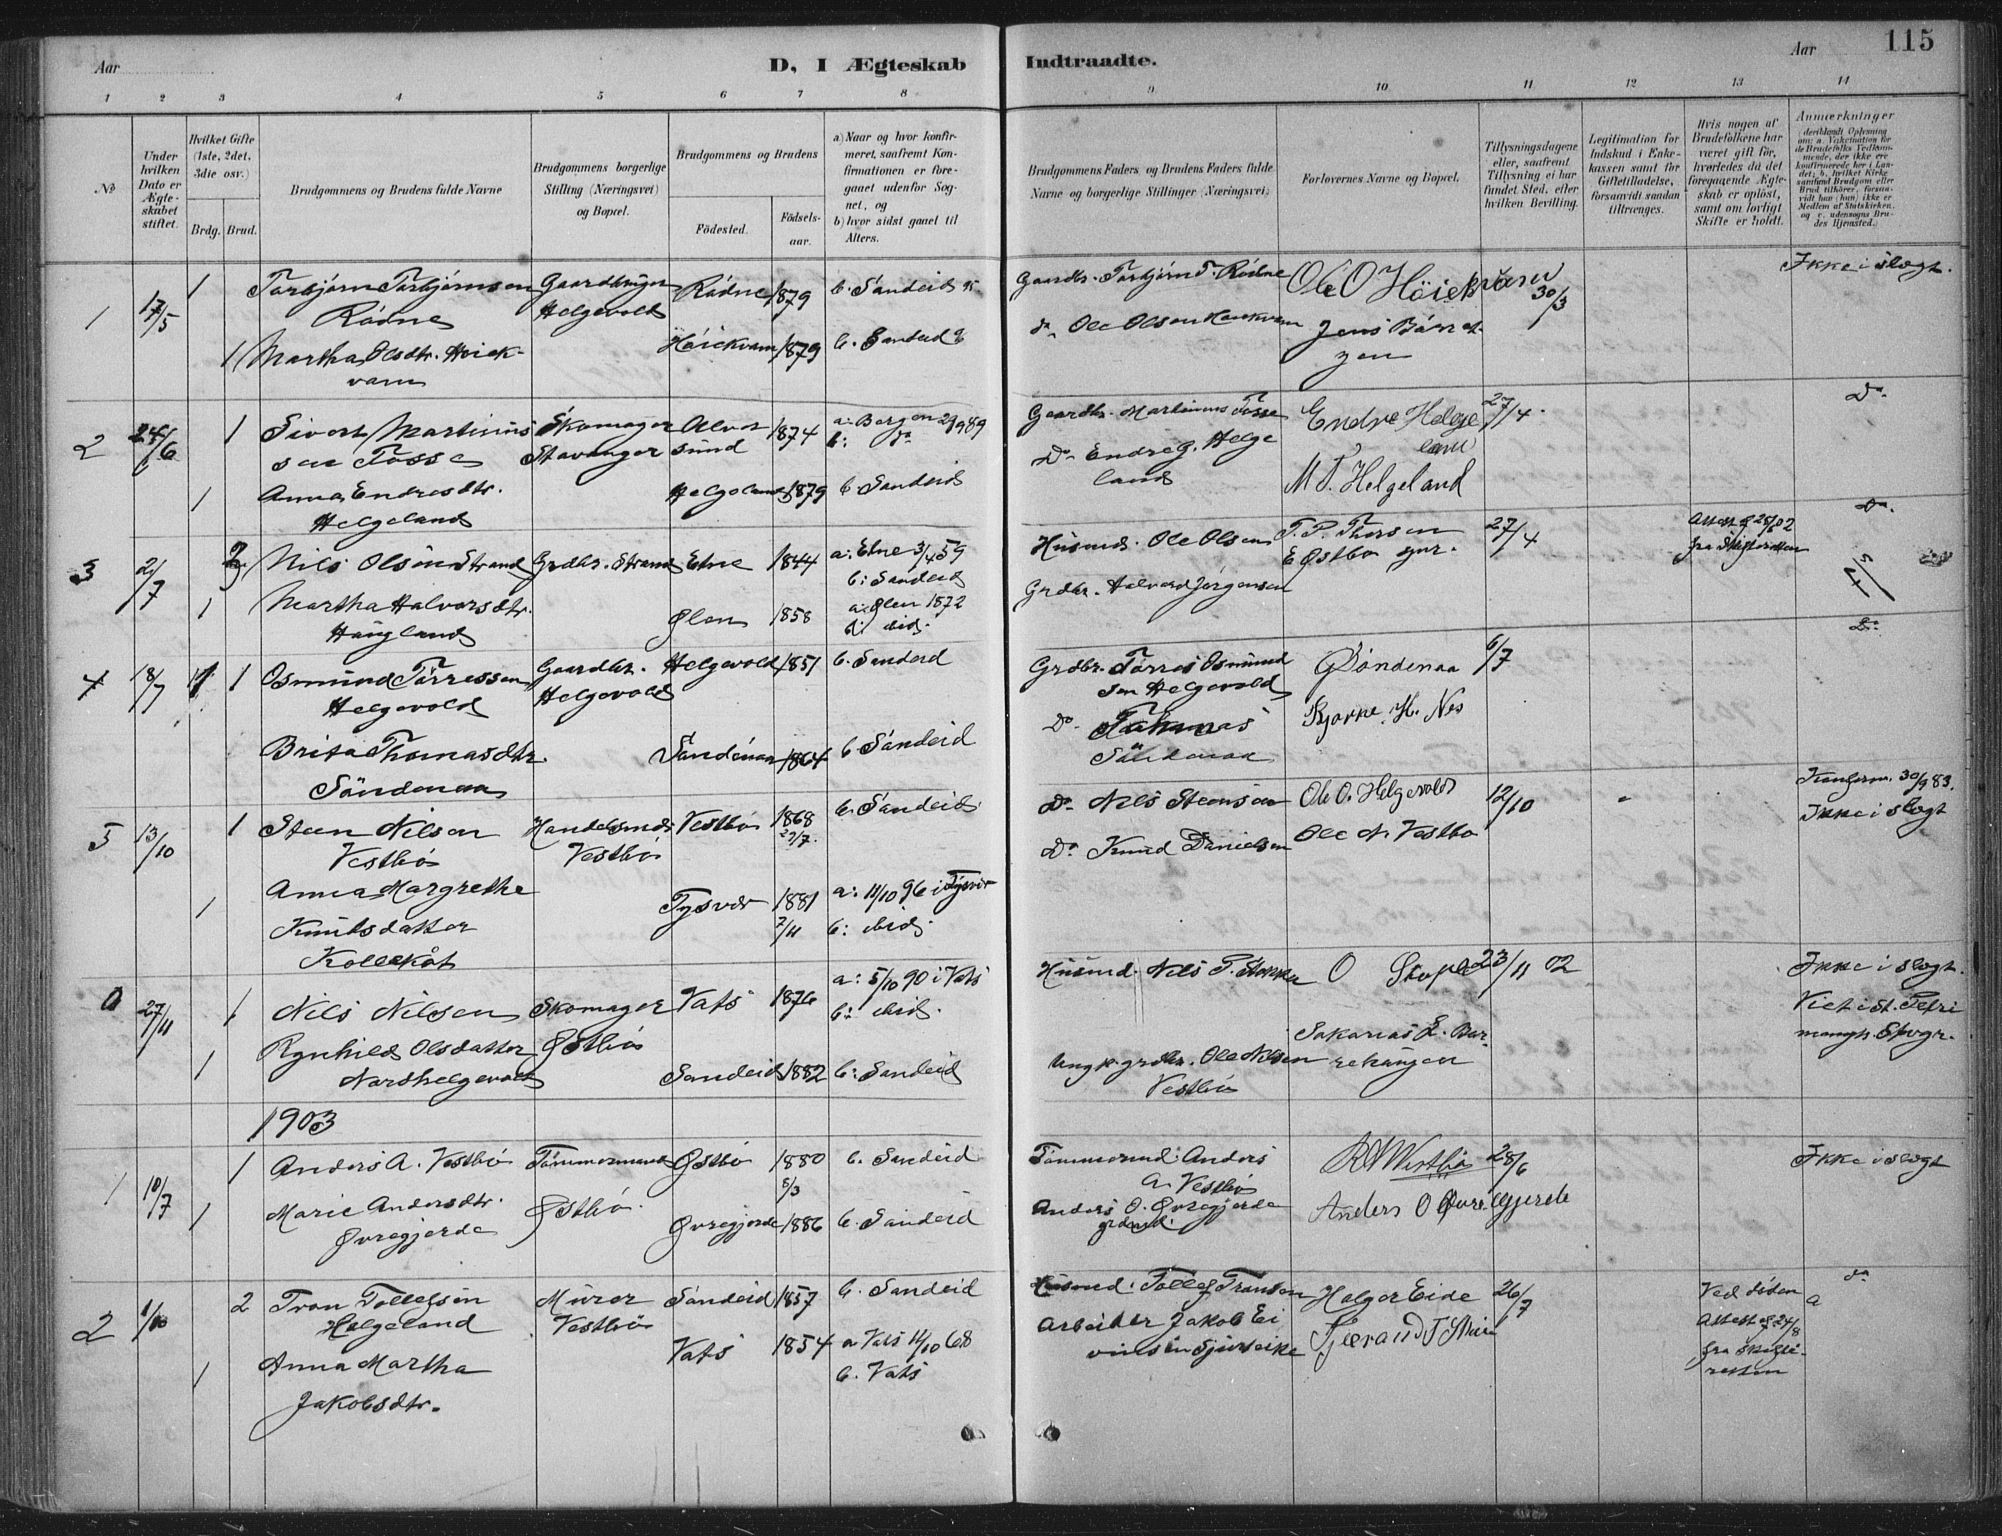 Aar
D, I Ægteskab
Indtraadte.
Aar
115
1 2 3 4 5 6 7 8 9 10 11 12 13 14
No
Under hvilken Dato er Ægteskabet stiftet.
Hvilket Gifte (1ste, 2det, 3die osv.)
Brdg. Brud.
Brudgommens og Brudens fulde Navne
Brudgommens borgerlige Stilling (Næringsvei) og Bopæl.
Brudgommens og Brudens
Födested.
Födselsaar.
a) Naar og hvor konfirmeret, saafremt Konfirmationen er foregaaet udenfor Sognet, og
b) hvor sidst gaaet til Alters.
Brudgommens Faders og Brudens Faders fulde Navne og borgerlige Stillinger (Næringsvei)
Forlovernes Navne og Bopæl.
Tillysningsdagene eller, saafremt Tillysning ei har fundet Sted, efter hvilken Bevilling.
Legitimation for Indskud i Enkekassen samt for Giftetilladelse, forsaavidt saadan tiltrænges.
Hvis nogen af Brudefolkene har været gift för, hvorledes da det foregaaende Ægteskab er oplöst, samt om lovligt Skifte er holdt.
Anmærkninger
1 17/5 1 Torbjørn Torbjørnsen Gaardbruger Rødne 1879 b. Sandeid
Rödne Helgevold
1 Martha Olsdtr. Høiekvam Höiekvam 1879 b. Sandeid
Gaardbr. Torbjørn T. Rödne Ole O Höiekvam 30/3 Ikke i slegt.
do Ole Olsen Høiekvam Jens
2 24/6 1 Sivert Martinussen Fosse Skomager Stavanger 1874 a: Bergen 29/9 89
b: do
1 Anna Endresdtr. Helgeland Helgeland 1879 b. Sandeid
Gaardbr. Martinus Fosse Endre Helgeland 27/4. Do
Do Endre G. Helgeland M T. Helgeland
3 2/7 2 Nils Olsen Strand Grdbr. Strand Etne 1844 a: Etne 3/4 59
b: Sandeid
1 Martha Halvorsdtr. Haugland Ølen 1858 a: Ølen 1872
b: ibid.
Husmd. Ole Olsen T. P. Thorsen 27/4 Do
Grdbr. Halvard Jørgensen E Østbø
fra Skifteretten
4 18/7 1 1 Osmund Tørressen Helgevold Gaardbr. Helgevold Helgevold 1851 b. Sandeid
Brita Thomasdtr. Söndenaa Söndenaa 1864 b. Sandeid
Grdbr. Tørres Osmundsen Helgevold Söndenaa 6/7 Do
Do Söndenaa Bjarne H. Nes
5 13/10 1 Steen Nilsen Vestbø Handelsmd. Vestbø Vestbø 1868 27/7. b. Sandeid
1 Anna Margrethe Knutsdatter Kolleskåt Tysvær 1881 2/11 a: 11/10 96 i Tysvær
b: ibid.
Do Nils Steensen Ole O. Helgevold 12/10 Konfirm. 30/9 83.
Do Knud Danielsen Ole N. Vestbø Ikke i slegt
27/11 1 Nils Nilsen Skomager Østbø Vats 1876 a: 5/10 90 i Vats
b: ibid.
1 Rynhild Olsdatter Nordhelgevold Sandeid 1882 b: Sandeid
Husmd. Nils P. O Stople 23/11 02 Ikke i slegt.
Viet i St. Petri
Ungk. grdbr. Ole Nilsen Vestbø Sakarias
1903
1 10/7 1 Anders A. Vestbø Tømmermand Østbø. Østbø 1880 5/3 b. Sandeid
1 Marie Andersdtr. Øvregjerde Øvregjerde 1886 b. Sandeid
Tømmermd. Anders A. Vestbø Vestbø 28/6 Ikke i slegt
Anders O. Øvregjerde Anders O Øvregjerde
2 1/10 2 Tron Tollefsen Helgeland Murer Vestbø Sandeid 1857 b. Sandeid
1 Anna Martha Jakobsdtr. Vats 1854 a Vats 11/10 68
b. Vats
Husmd. Tollef Tronsen Holger Eide 26/7 Ved døden do
Arbeider Jakob Eivinsen Attest af 24/8
fra Skifteretten